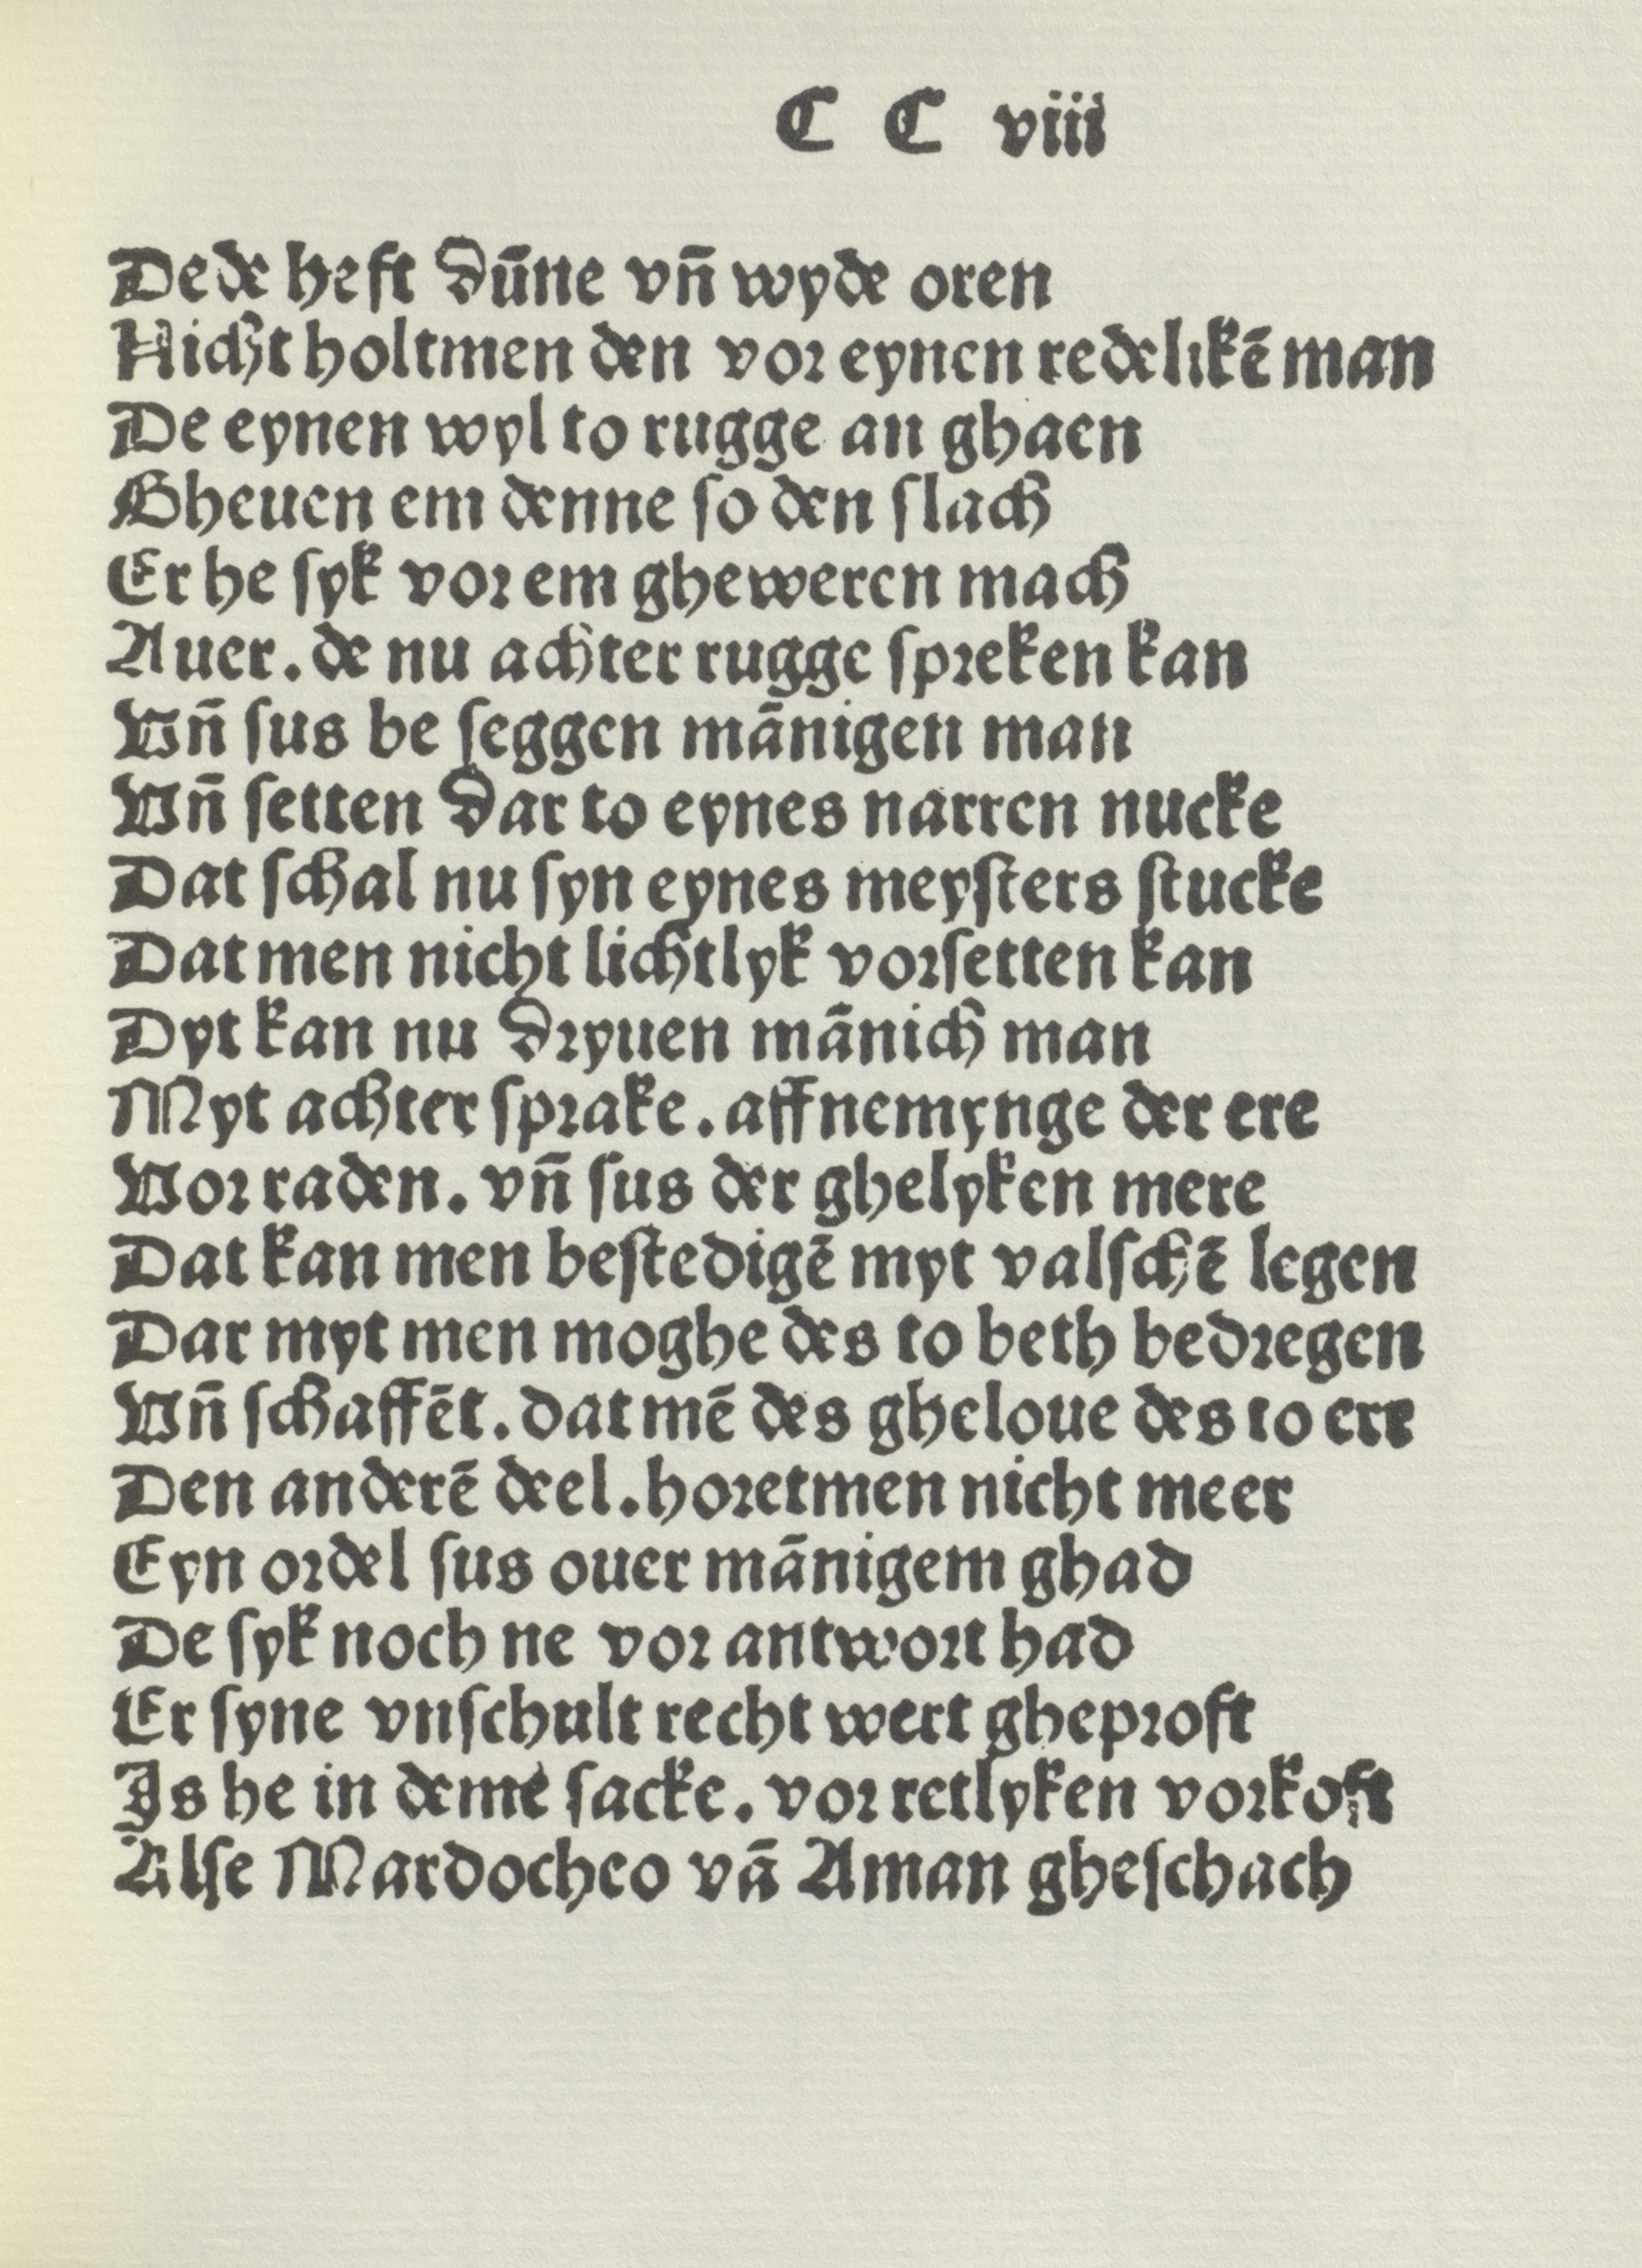 C C viii
De de heft dūne vn̄ wyde oren
Nicht holtmen den vor eynen redelikē man
De eynen wyl to rugge an ghaen
Gheuen em denne so den slach
Er he syk vor em gheweren mach
Auer. de nu achter rugge spreken kan
Vn̄ sus be seggen mānigen man
Vn̄ setten dar to eynes narren nucke
Dat schal nu syn eynes meysters stucke
Dat men nicht lichtlyk vorsetten kan
Dyt kan nu dryuen mānich man
Myt achter sprake. affnemynge der ere
Vor raden. vn̄ sus der ghelyken mere
Dat kan men bestedigē myt valschē legen
Dar myt men moghe des to beth bedregen
Vn̄ schaffēt. dat mē des gheloue des to err
Den anderē deel. horetmen nicht meer
Eyn ordel sus ouer mānigem ghad
De syk noch ne vor antwort had
Er syne vnschult recht wert gheproft
Is he in deme sacke. vor retlyken vorkoft
Alse Mardocheo vā Aman gheschach